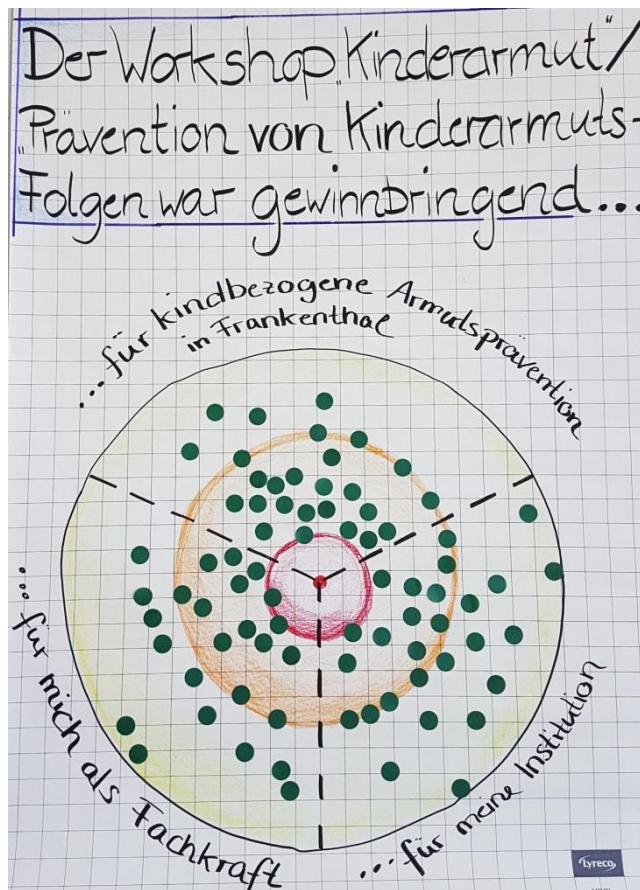 Der Workshop „Kinderarmut“/
„Prävention von Kinderarmuts-
Folgen war gewinnbringend...
...für kindbezogene Armutsprävention
in Frankenthal
...für mich als Fachkraft
...für meine Institution
Lyreco